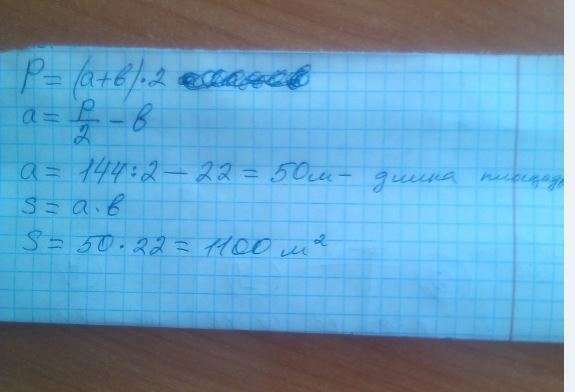 P = (a+b)·2
a = P/2 - b
a = 144:2 - 22 = 50м - длина площадь
S = a·b
S = 50·22 = 1100 м²